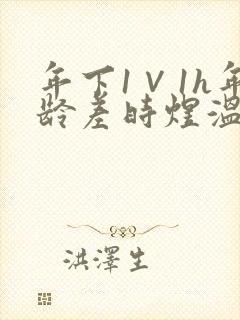 年下1V1h年
龄差时煜温
洪澤生